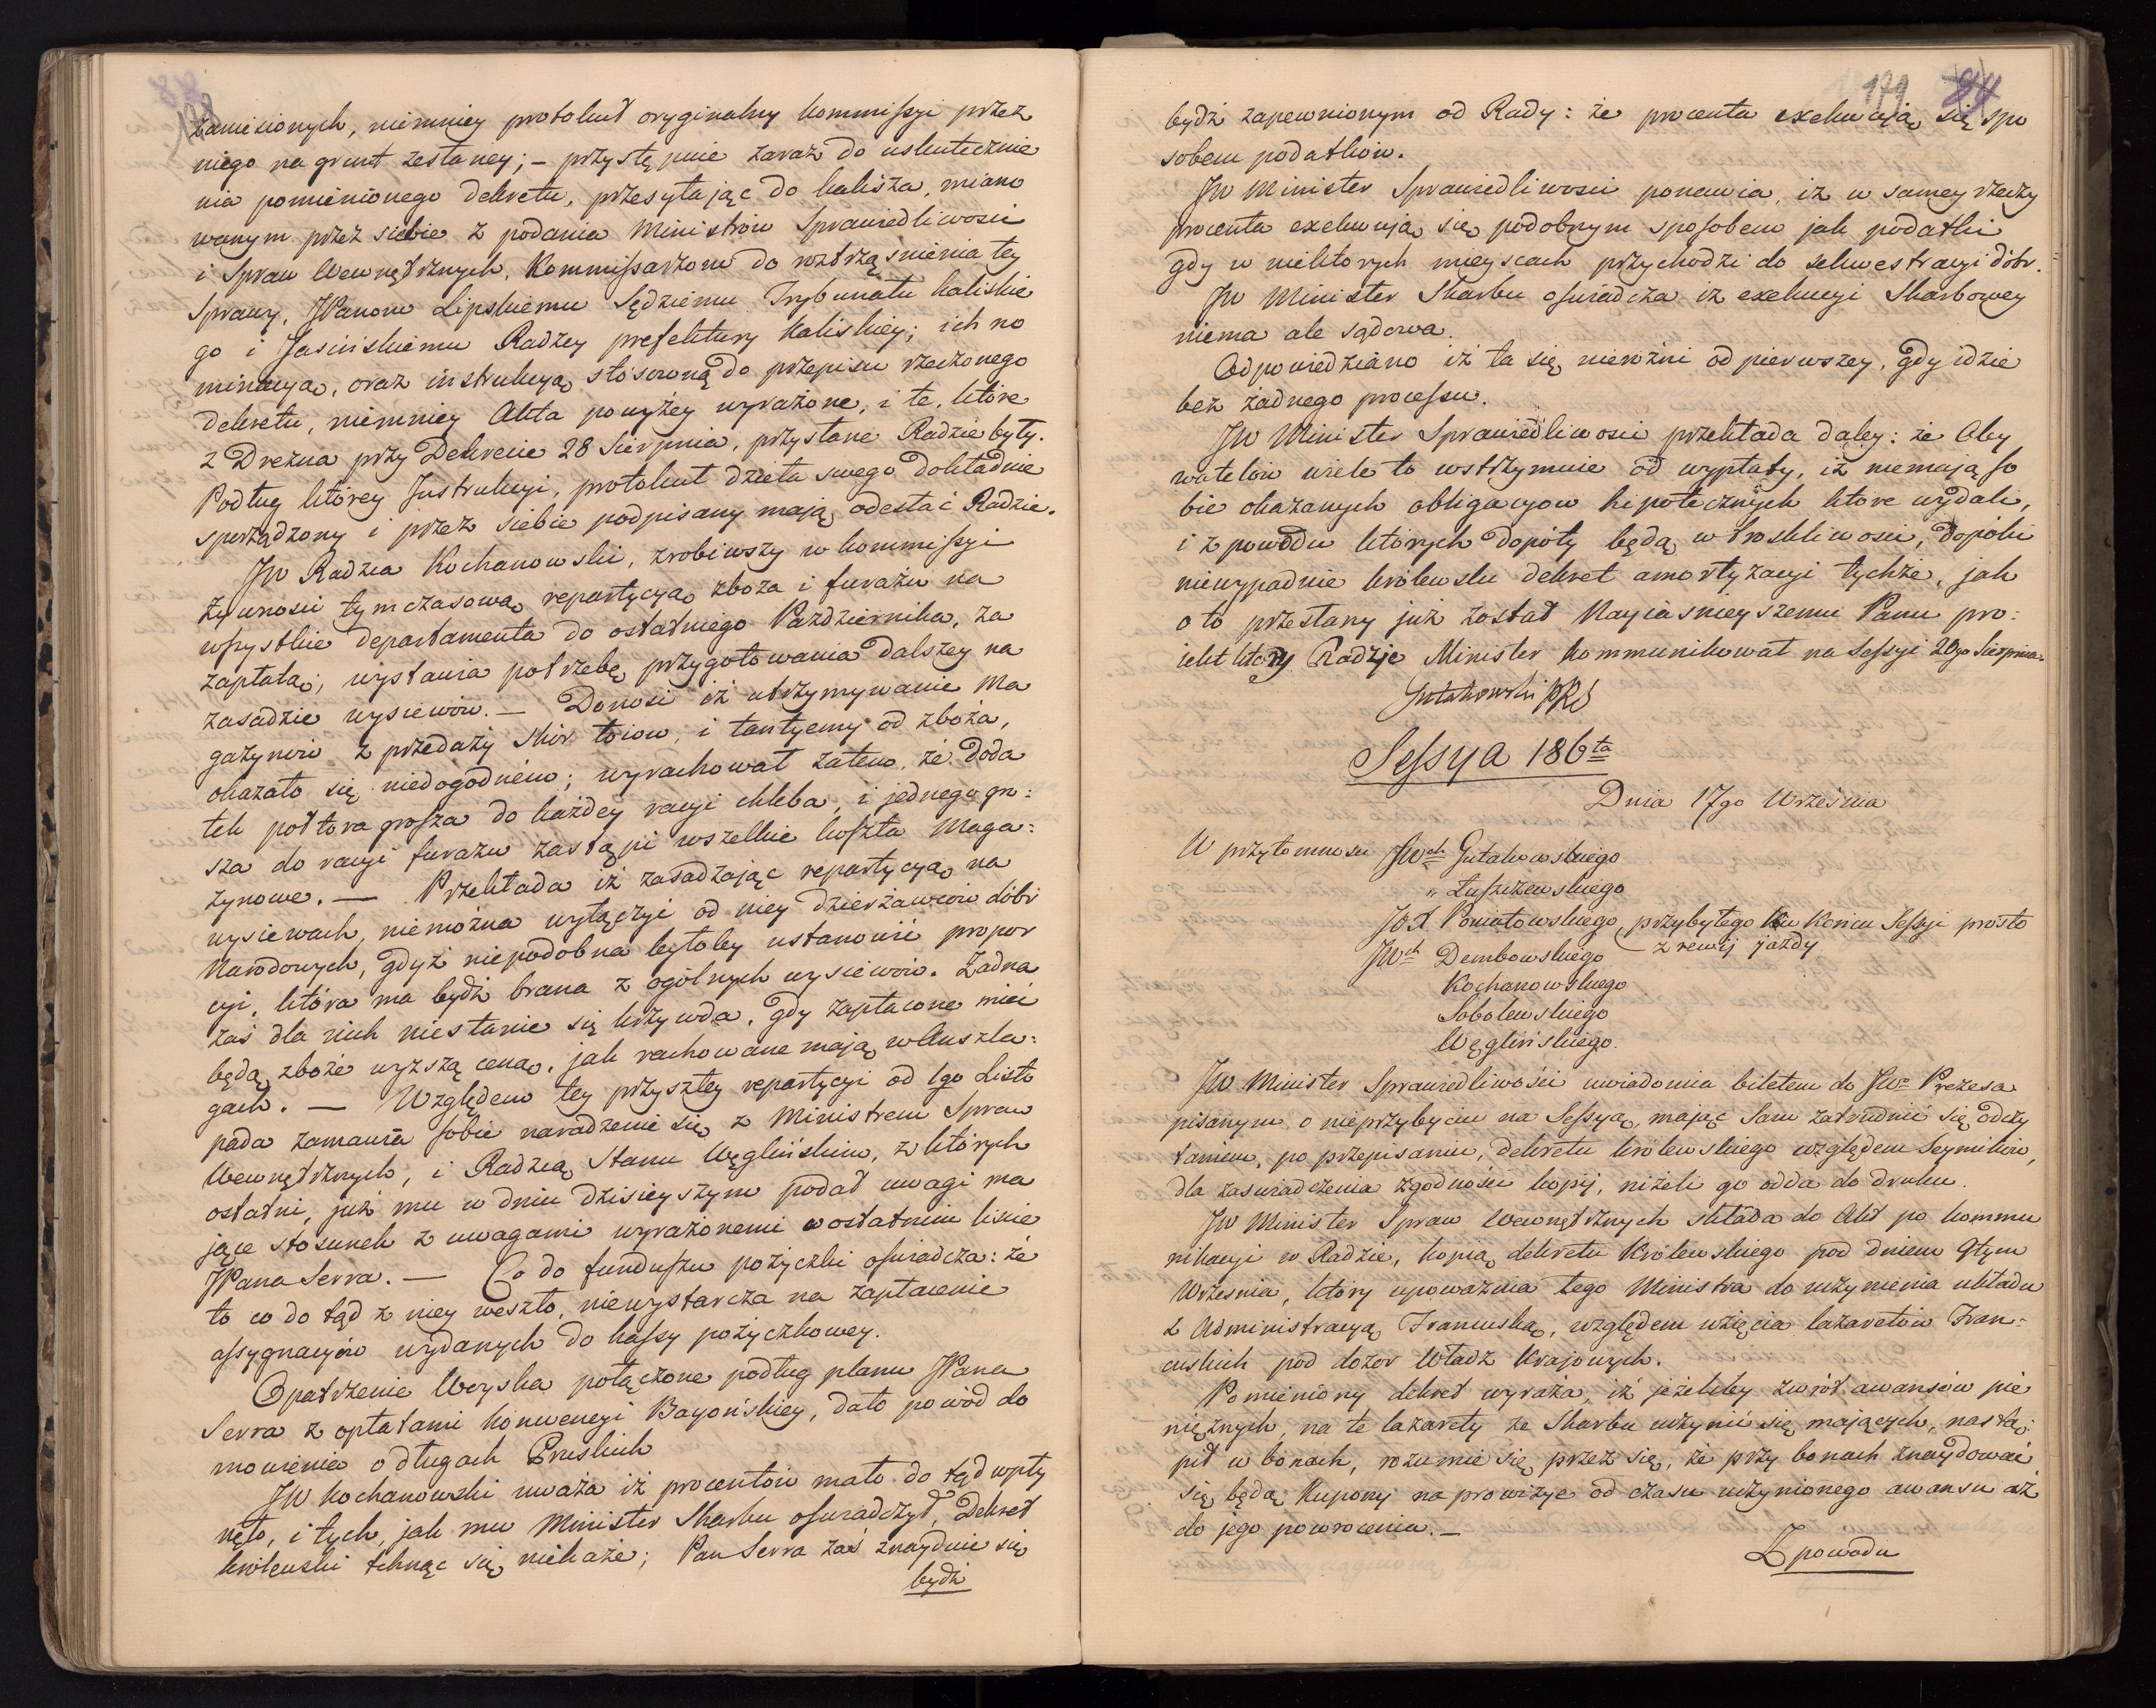 88
178
zaniesionych, niemniey protokuł oryginalny kommissyi przez
niego na grunt zesłaney; – przystępuie zaraz do uskutecznie
nia pomienionego dekretu, przesyłając do Kalisza, miano
wanym przez siebie z podania Ministrów Sprawiedliwosci
i Spraw Wewnętrznych, Kommissarzom do roztrząsnienia tey
Sprawy, JPanom Lipskiemu Sędziemu Trybunału Kaliskie
go i Jasińskiemu Radzcy prefektury Kaliskiey; ich no
minacyą, oraz instrukcyą stósowną do przepisu rzeczonego
dekretu, niemniey Akta powyżey wyrażone, i te, które
z Drezna przy Dekrecie 28 Sierpnia, przysłane Radzie były.
Podług którey Instrukcyi, protokuł dzieła swego dokładnie
sporządzony i przez siebie podpisany mają odesłać Radzie.
JW Radzca Kochanowski, zrobiwszy w kommissyi
żywnosci tymczasową repartycyą zboża i furażu na
wszystkie departamenta do ostatniego Pazdziernika, za
zapłatą; wystawia potrzebę przygotowania dalszey na
zasadzie wysiewów. – Donosi iż utrzymywanie Ma
gazynów z przedaży skór łoiow, i tantyemy od zboża,
okazało się niedogodném; wyrachował zatem, że doda
tek półtora grosza do każdey racyi chleba, i jednego gro:
sza do racyi furażu zastąpi wszelkie koszta Maga:
zynowe. – Przekłada iż zasadzając repartycyą na
wysiewach, niemożna wyłączyć od niey dzierżawców dóbr
Narodowych, gdyż niepodobna byłoby ustanowić propor
cyi, która ma bydź brana z ogólnych wysiewów. Żadna
zaś dla nich niestanie się krzywda, gdy zapłacone mieć
będą zboże wyższą ceną, jak rachowane mają w Anszla:
gach. – Względem tey przyszłey repartycyi od 1go Listo
pada zamawia sobie naradzenie się z Ministrem Spraw
Wewnętrznych, i Radzcą Stanu Węglińskim, z których
ostatni, już mu w dniu dzisieyszym podał uwagi ma
jące stosunek z uwagami wyrażonemi w ostatnim liście
JPana Serra. – Co do funduszu pożyczki oświadcza: że
to co do tąd z niey weszło, niewystarcza na zapłacenie
assygnacyów wydanych do kassy pożyczkowey.
Opatrzenie Woyska połączone podług planu JPana
Serra z opłatami konwencyi Bayońskiey, dało powód do
mowienia o długach Pruskich
JW Kochanowski uważa iż procentów mało do tąd wpły
nęło, i tych, jak mu Minister Skarbu oswiadczył, Dekret
królewski tchnąc się niekaże; Pan Serra zaś znayduie się
bydź
179 84
bydź zapewnionym od Rady: że procenta exekwują się spo
sobem podatków.
JW Minister Sprawiedliwosci ponawia, iż w samey rzeczy
procenta exekwują się podobnym sposobem jak podatki
gdy w niektorych mieyscach przychodzi do sekwestracyi dóbr.
JW Minister Skarbu oswiadcza iż exekucyi Skarbowey
niema ale sądowa.
Odpowiedziano iż ta się nierożni od pierwszey, gdy idzie
bez żadnego processu.
JW Minister Sprawiedliwosci przekłada daley: że Oby
watelów wiele to wstrzymuie od wypłaty, iż niemają so
bie okazanych obligacyow hipotecznych które wydali,
i z powodu których dopóty będą w troskliwosci, dopóki
niewypadnie królewski dekret amortyzacyi tychże, jak
o to przesłany już został Nayiaśnieyszemu Panu pro:
iekt który Radzie Minister kommunikował na Sessyi 20go Sierpnia.
Gutakowski PRS
Sessya 186ta
Dnia 17go Września
W przytomnosci JWch Gutakowskiego
" Łuszczewskiego
JOX Poniatowskiego, przybyłego ku Końcu Sessyi prosto
z rewij jazdy
JWch Dembowskiego
Kochanowskiego
Sobolewskiego
Węglińskiego.
JW Minister Sprawiedliwości uwiadomia biletem do JWo Prezesa
pisanym o nieprzybyciu na Sessyą, mając sam zatrudnić się odczy
taniem, po przepisaniu, dekretu królewskiego względem Seymików,
dla zaswiadczenia zgodności kopij, niżeli go odda do druku.
JW Minister Spraw Wewnętrznych składa do Akt po kommu
nikacyi w Radzie, kopią dekretu Królewskiego pod dniem 9tym
Września, który upoważnia tego Ministra do uczynienia układu
z Administracyą Francuską, względem wzięcia lazaretów Fran=
cuskich pod dozor Władz Krajowych.
Pomieniony dekret wyraża, iż jeżeliby zwrót awansów pie
niężnych, na te lazarety ze Skarbu uczynić się mających, nastą:
pił w bonach, rozumie się przez się, że przy bonach znaydować
się będą kupony na prowizye od czasu uczynionego awansu aż
do jego powrocenia. –
Z powodu